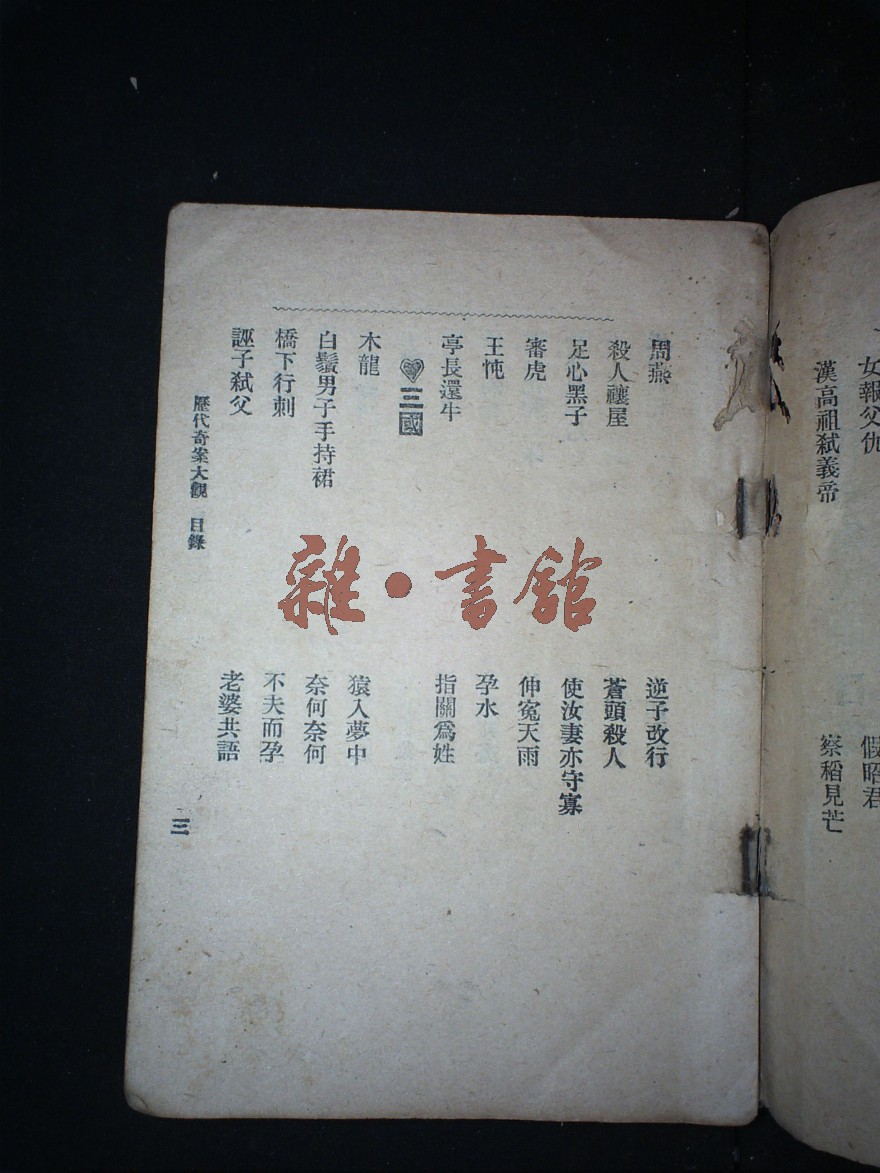 女報父仇
假昭君
漢高祖弑義帝
察稻見芒
周燕
逆子改行
殺人禳屋
蒼頭殺人
足心黑子
使汝妻亦守寡
審虎
伸冤天雨
王忳
孕水
亭長還牛
指關爲姓
三國
木龍
猿入夢中
白鬚男子手持裙
奈何奈何
橋下行刺
不夫而孕
誣子弑父
老婆共語
歷代奇案大觀 目錄
三
雜·書館